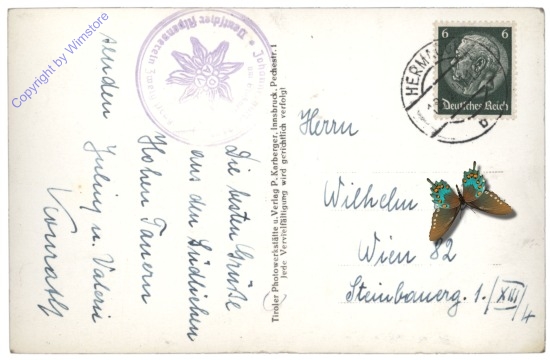 Die besten Grüße
aus den Südlichen
Hohen Tauern
senden
Julius u. Valerie
Konrath
Deutscher Alpenverein
Tiroler Photowerkstätte u. Verlag P. Karberger, Innsbruck, Pechestr. 1
Jede Vervielfältigung wird gerichtlich verfolgt
6 6
Deutsches Reich
HERMA
Herrn
Wilhelm
Wien 82
Steinbauerg. 1./XIII/4
Copyright by Wimstore